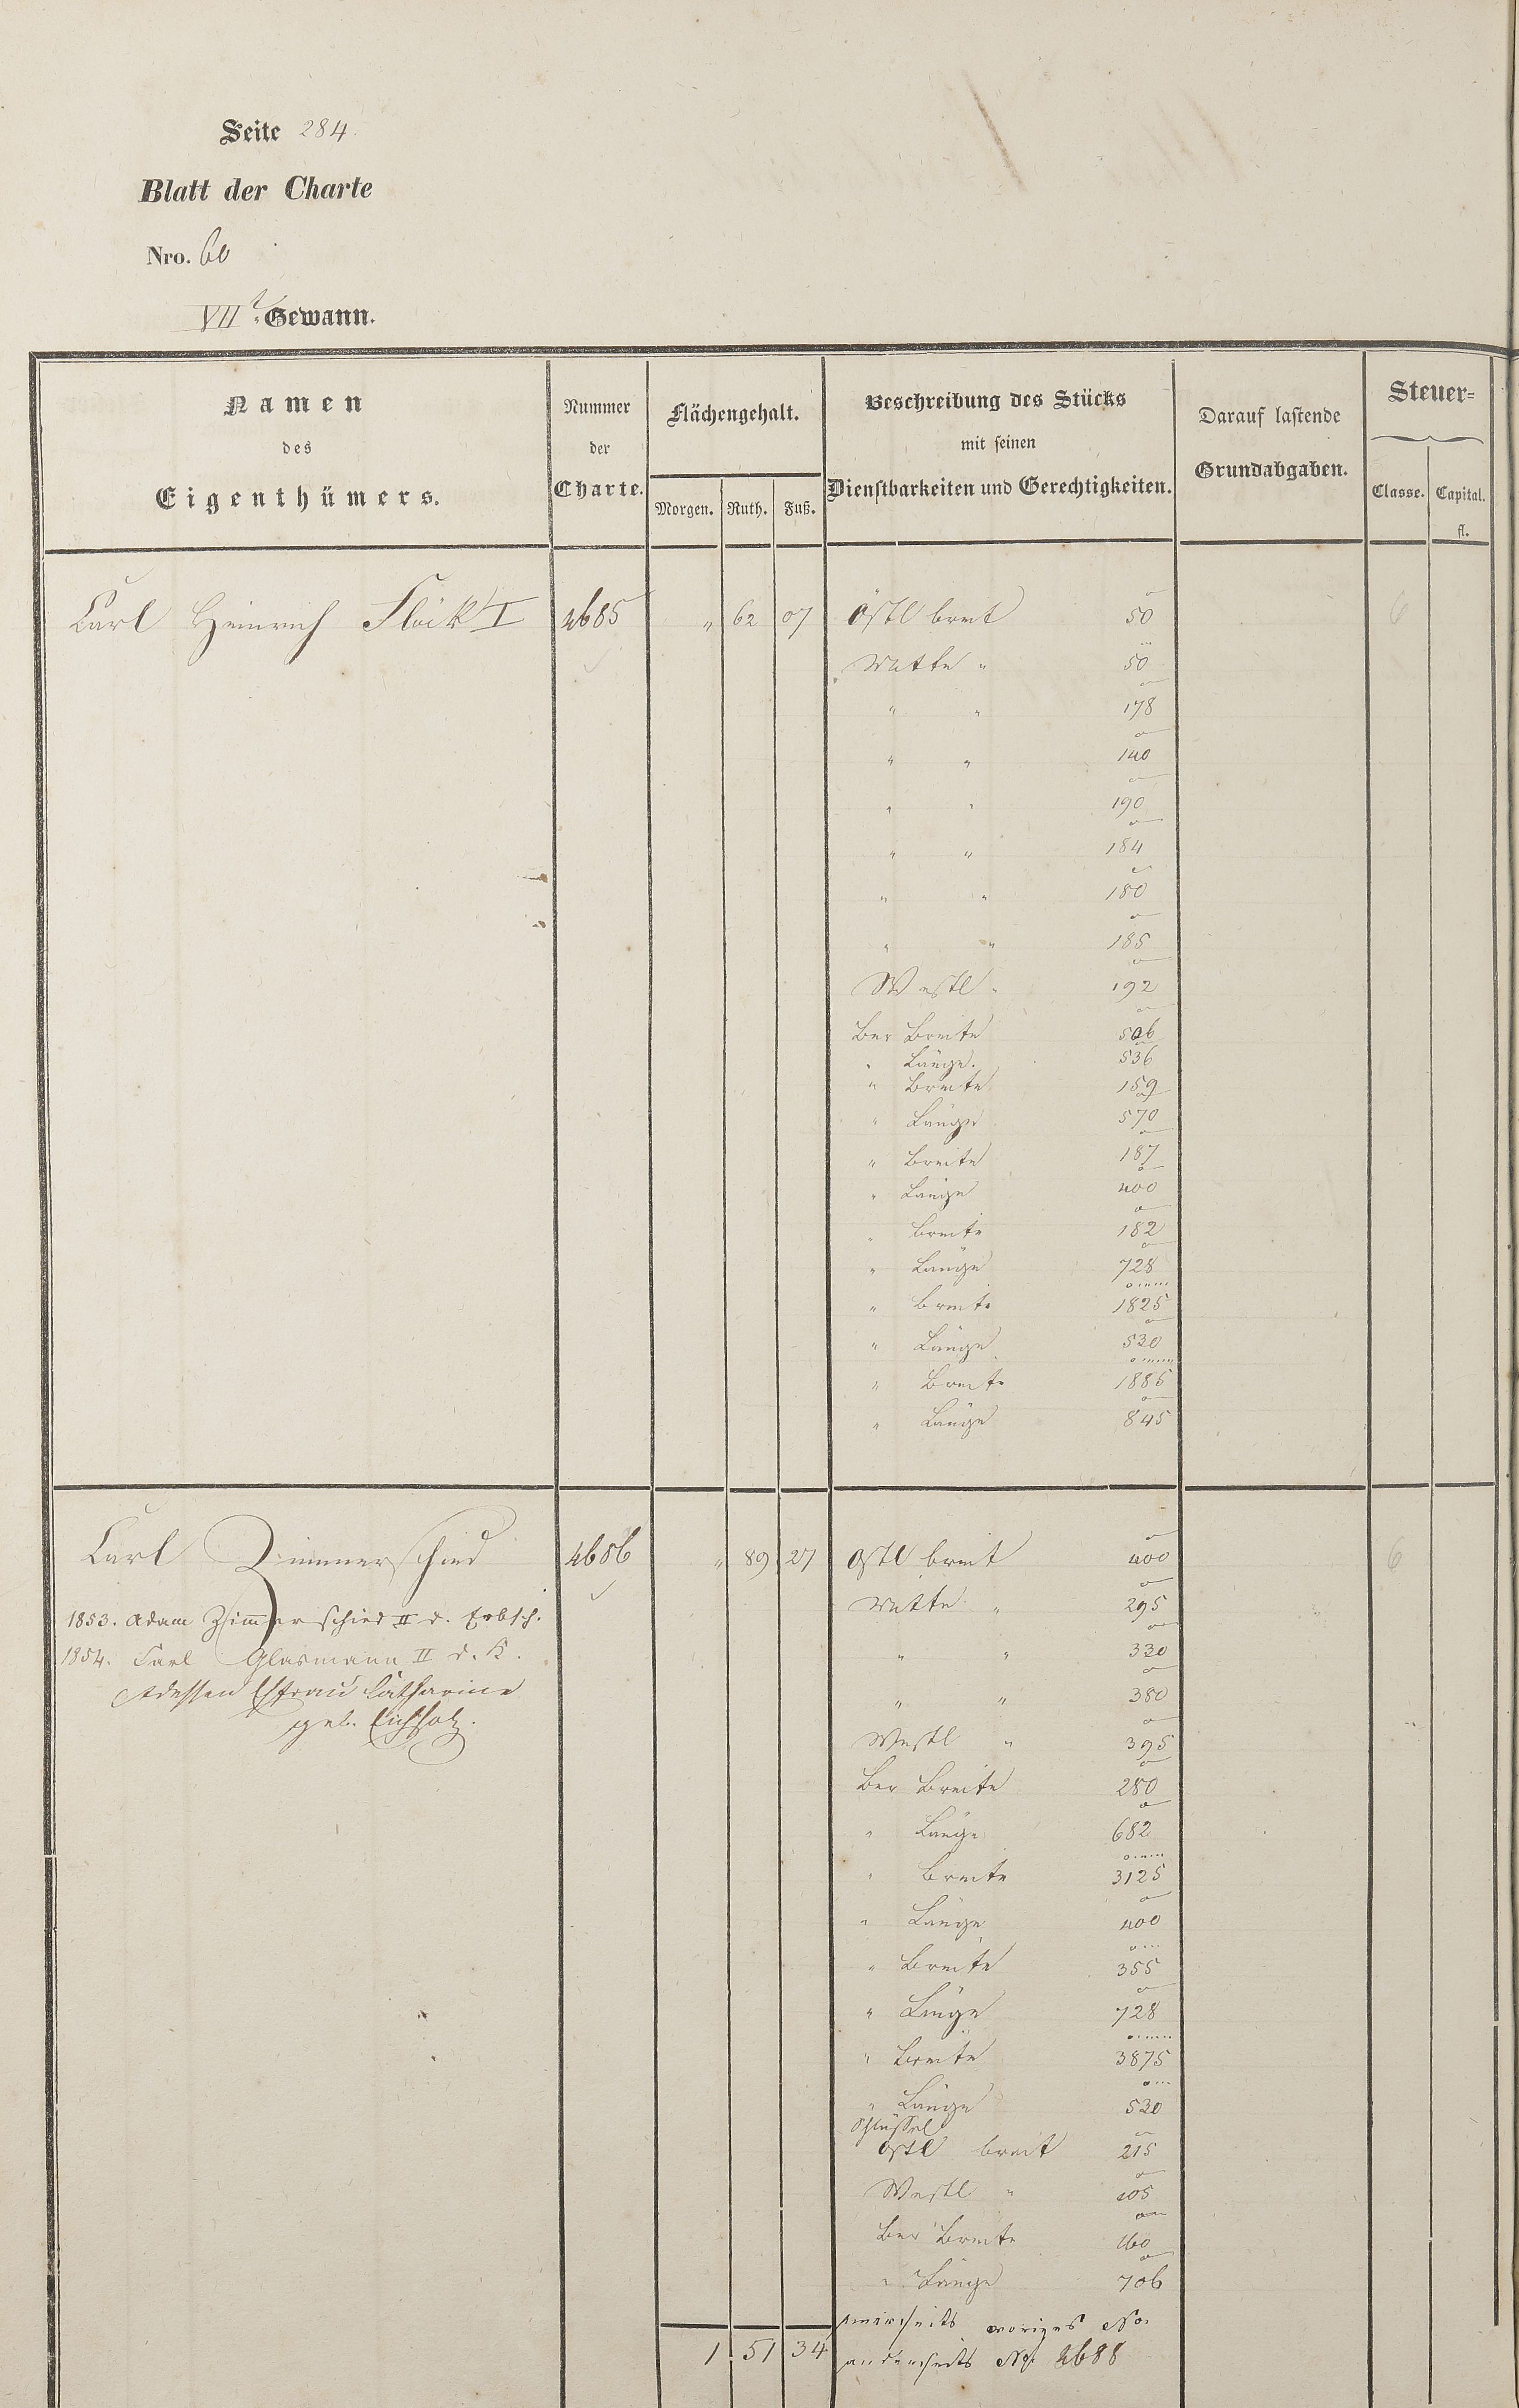 Seite 284.
Blatt der Charte
Nro. 60
VIIt. Gewann.
Namen des Eigenthümers.
Nummer der Charte.
Flächengehalt.
Morgen. Ruth. Fuß.
Beschreibung des Stücks
mit seinen
Dienstbarkeiten und Gerechtigkeiten.
Darauf lastende
Grundabgaben.
Steuer=
Classe. Capital.
fl.
Carl Heinrich Flöck I 4685 " 62 07 Östl breit 50 6
Mitte " 50
" " 178
" " 140
" " 190
" " 184
" " 180
" " 185
Westl " 192
Ber Breite 506
" Länge. 536
" Breite 159
" Länge 570
" Breite 187
" Länge 400
" Breite 182
" Länge 728
" Breite 1825
" Länge 520
" Breite 1886
" Länge 845
Carl Zimmerschied 4686 " 89 27 Ostl breit 400 6
1853. Adam Zim̄erschied II d. Erbsch.
1854. Carl Glasmann II d. K.
Adessen Ehfrau Catharine
geb. Eichholz.
Mitte " 295
" " 330
" " 380
Westl " 395
Ber Breite 280
" Länge 682
" Breite 3125
" Länge 400
" Breite 355
" Länge 728
" Breite 3875
" Länge 520
Schlüssel
Ostl breit 215
Westl " 105
Ber Breite 160
" Länge 706
einerseits voriges No.
1 51 34 anderseits No. 4688